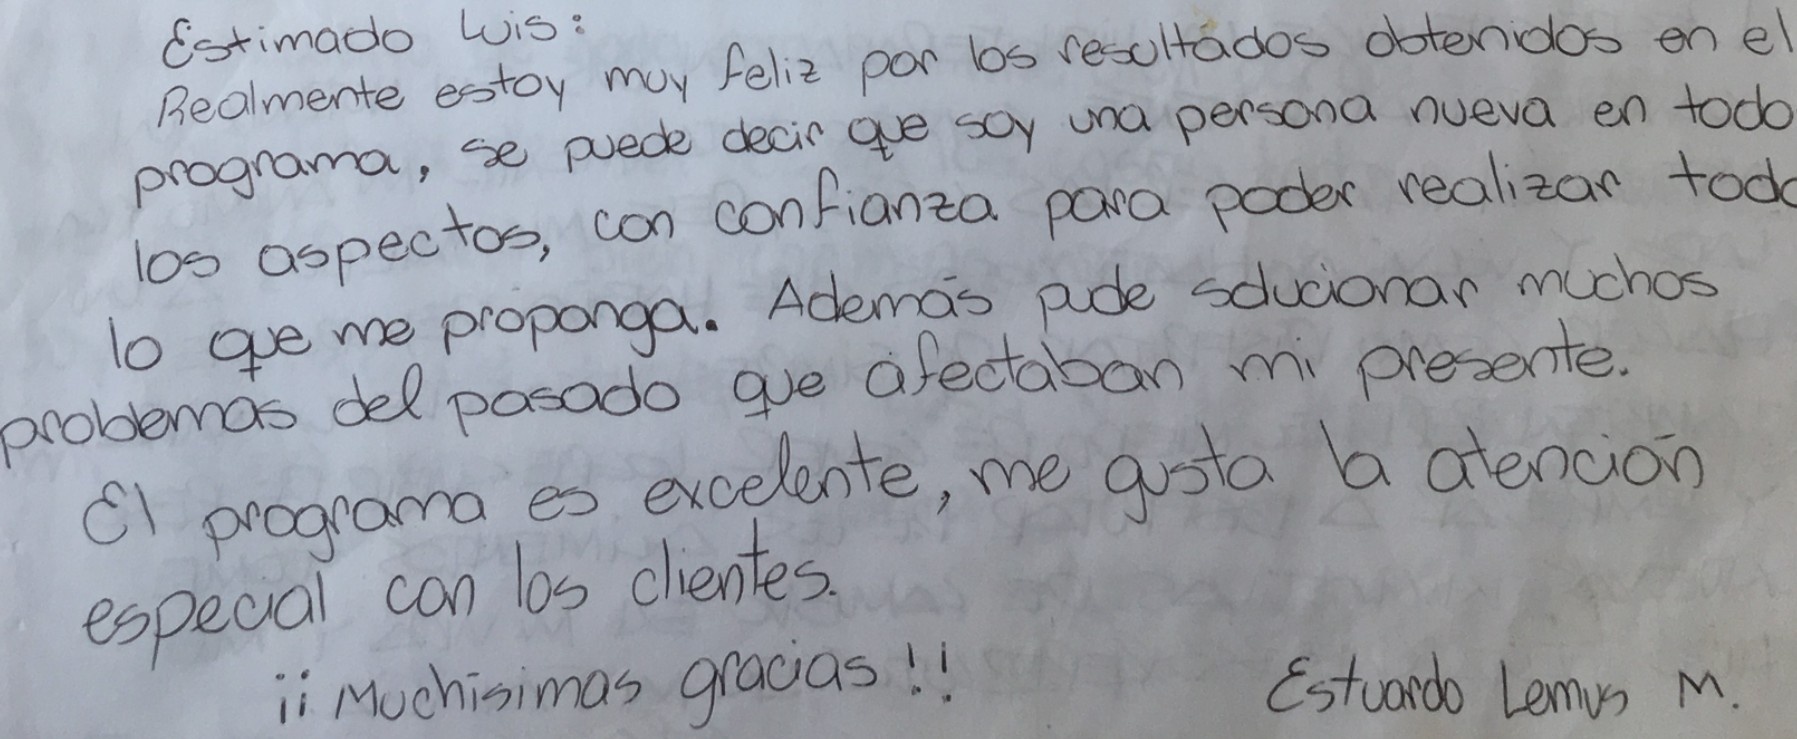 Estimado Luis:
Realmente estoy muy feliz por los resultados obtenidos en el
programa, se puede decir que soy una persona nueva en todo
los aspectos, con confianza para poder realizar todo
lo que me proponga. Además pude solucionar muchos
problemas del pasado que afectaban mi presente.
El programa es excelente, me gusta la atención
especial con los clientes.
¡¡Muchisimas gracias!!
Estuardo Lemus M.